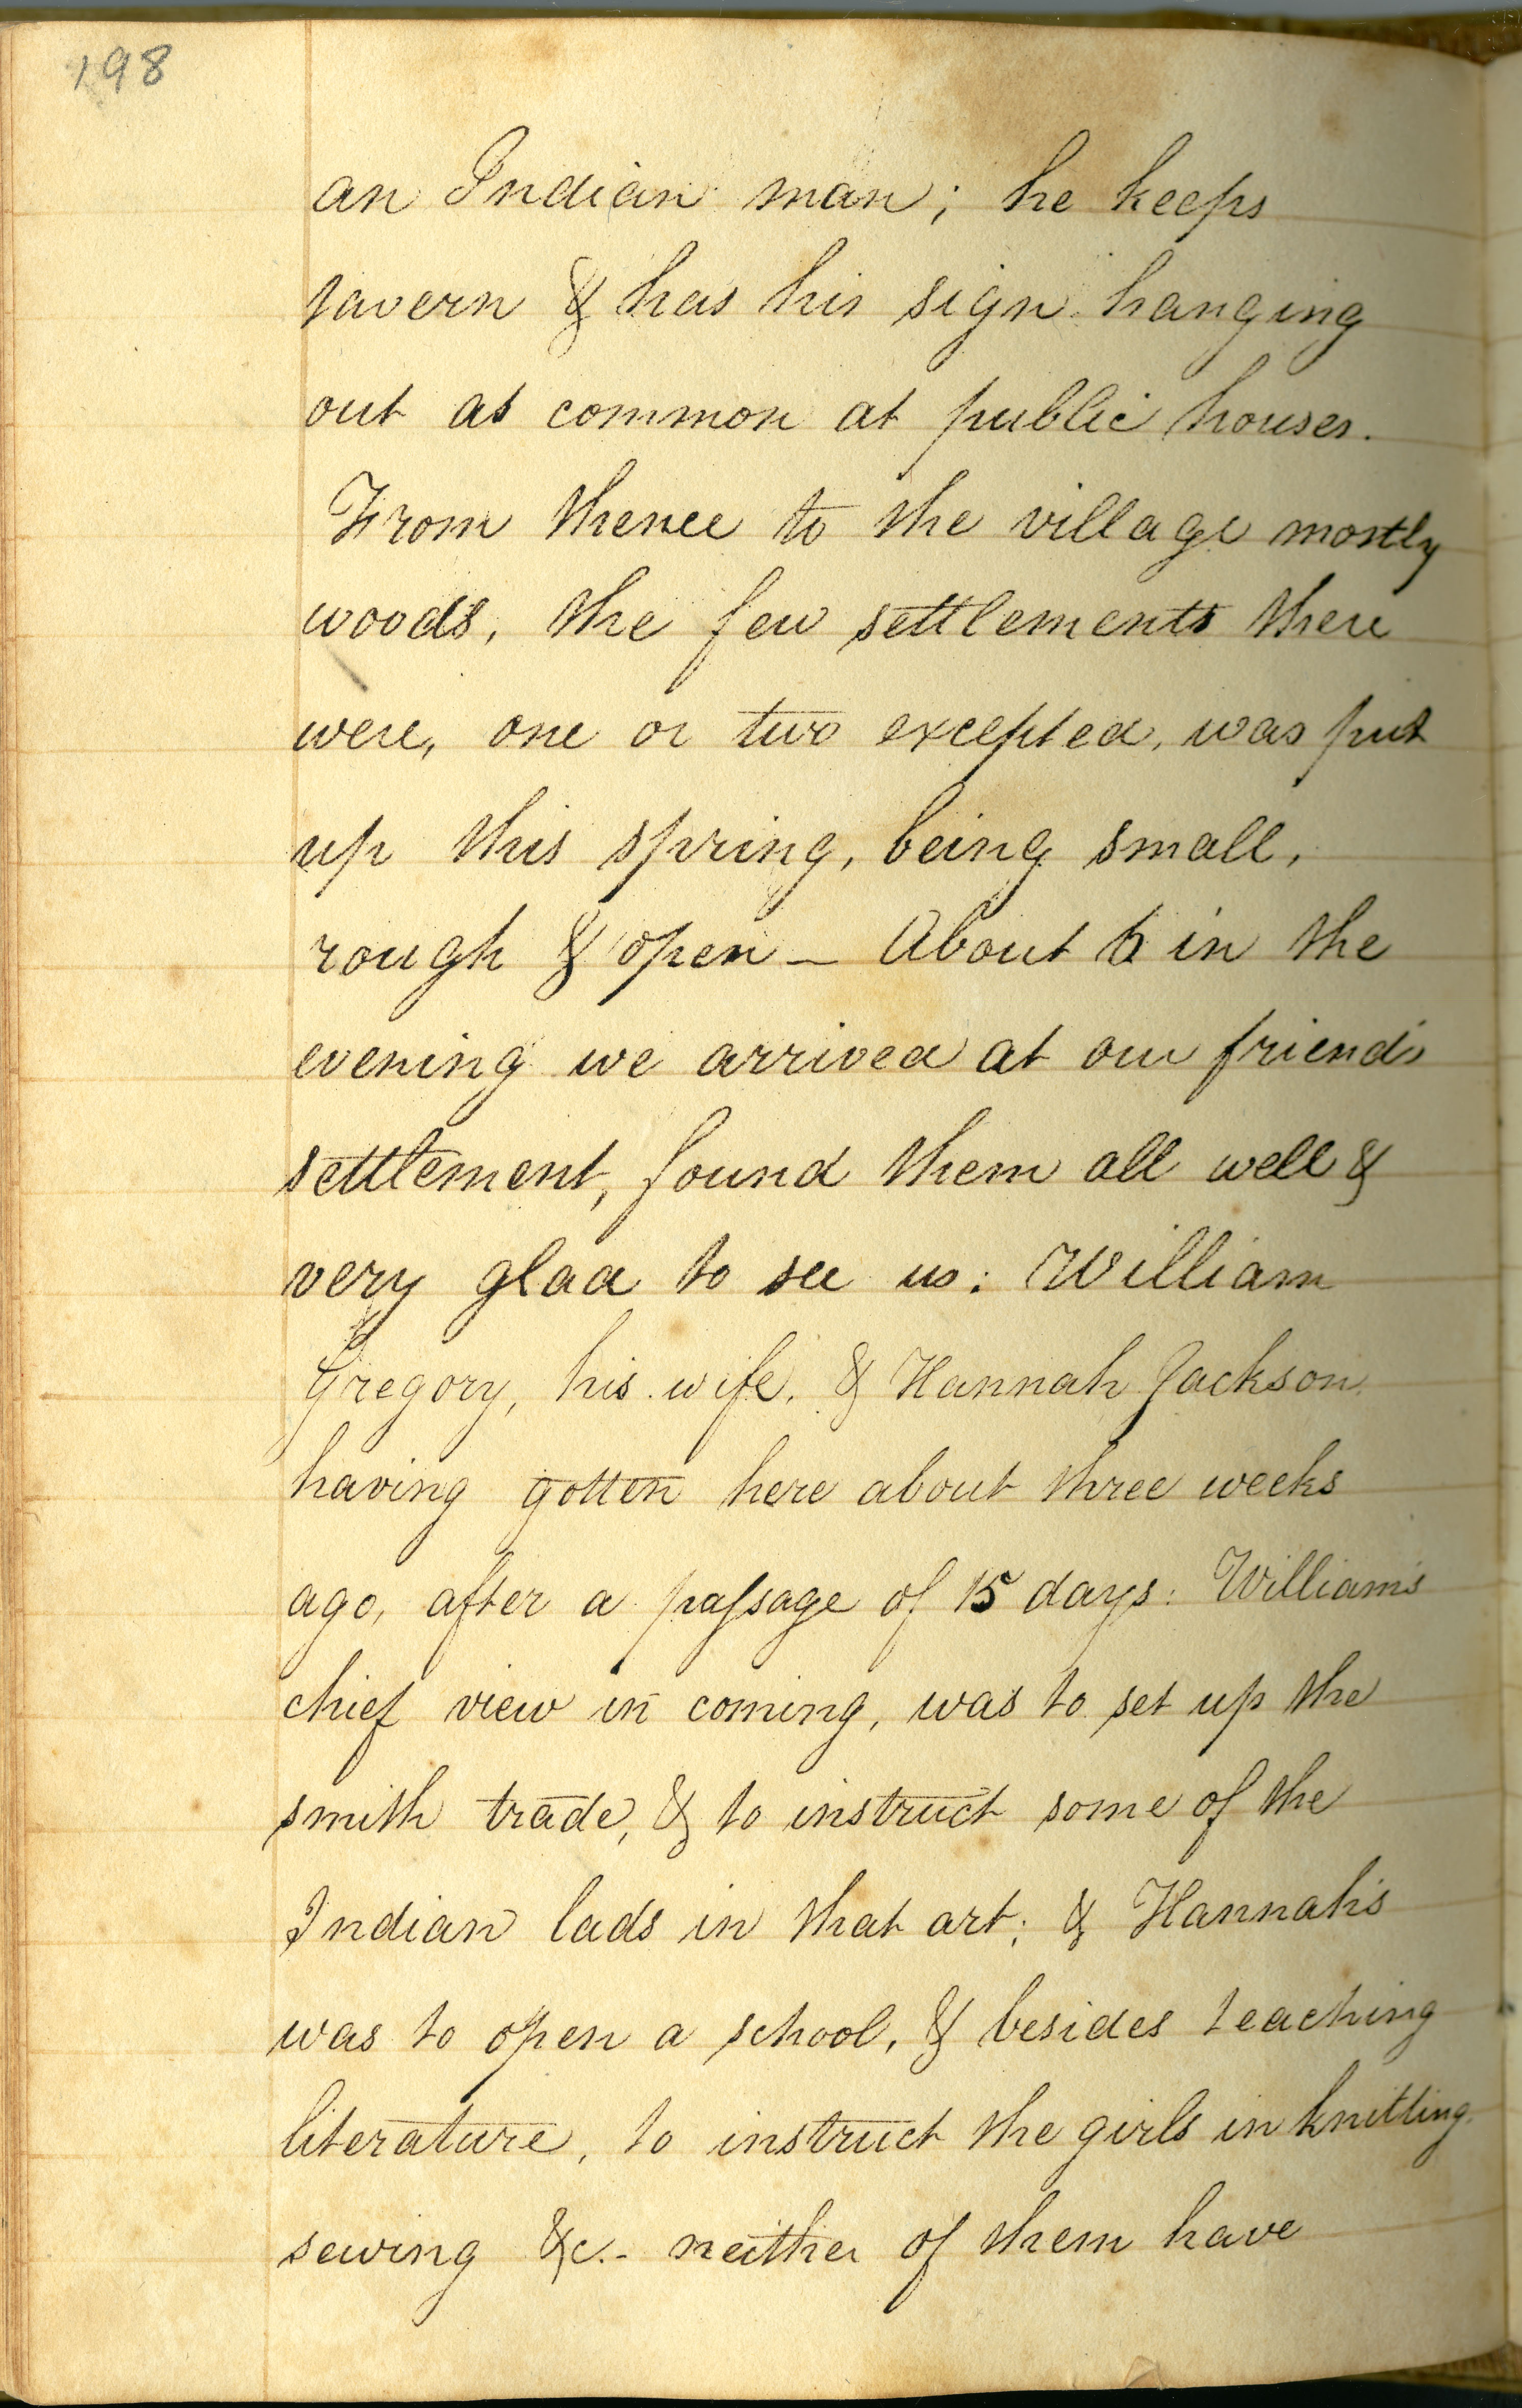 198
an Indian man; he keeps
tavern & has his sign hanging
out as common at public houses.
From thence to the village mostly
woods, the few settlements there
were, one or two excepted, was put
up this spring, being small,
rough & open — About 6 in the
evening we arrived at our friend's
settlement, found them all well &
very glad to see us: William
Gregory, his wife, & Hannah Jackson,
having gotten here about three weeks
ago, after a passage of 15 days: William's
chief view in coming, was to set up the
smith trade, & to instruct some of the
Indian lads in that art; & Hannah's
was to open a school, & besides teaching
literature, to instruct the girls in knitting,
sewing &c.- neither of them have